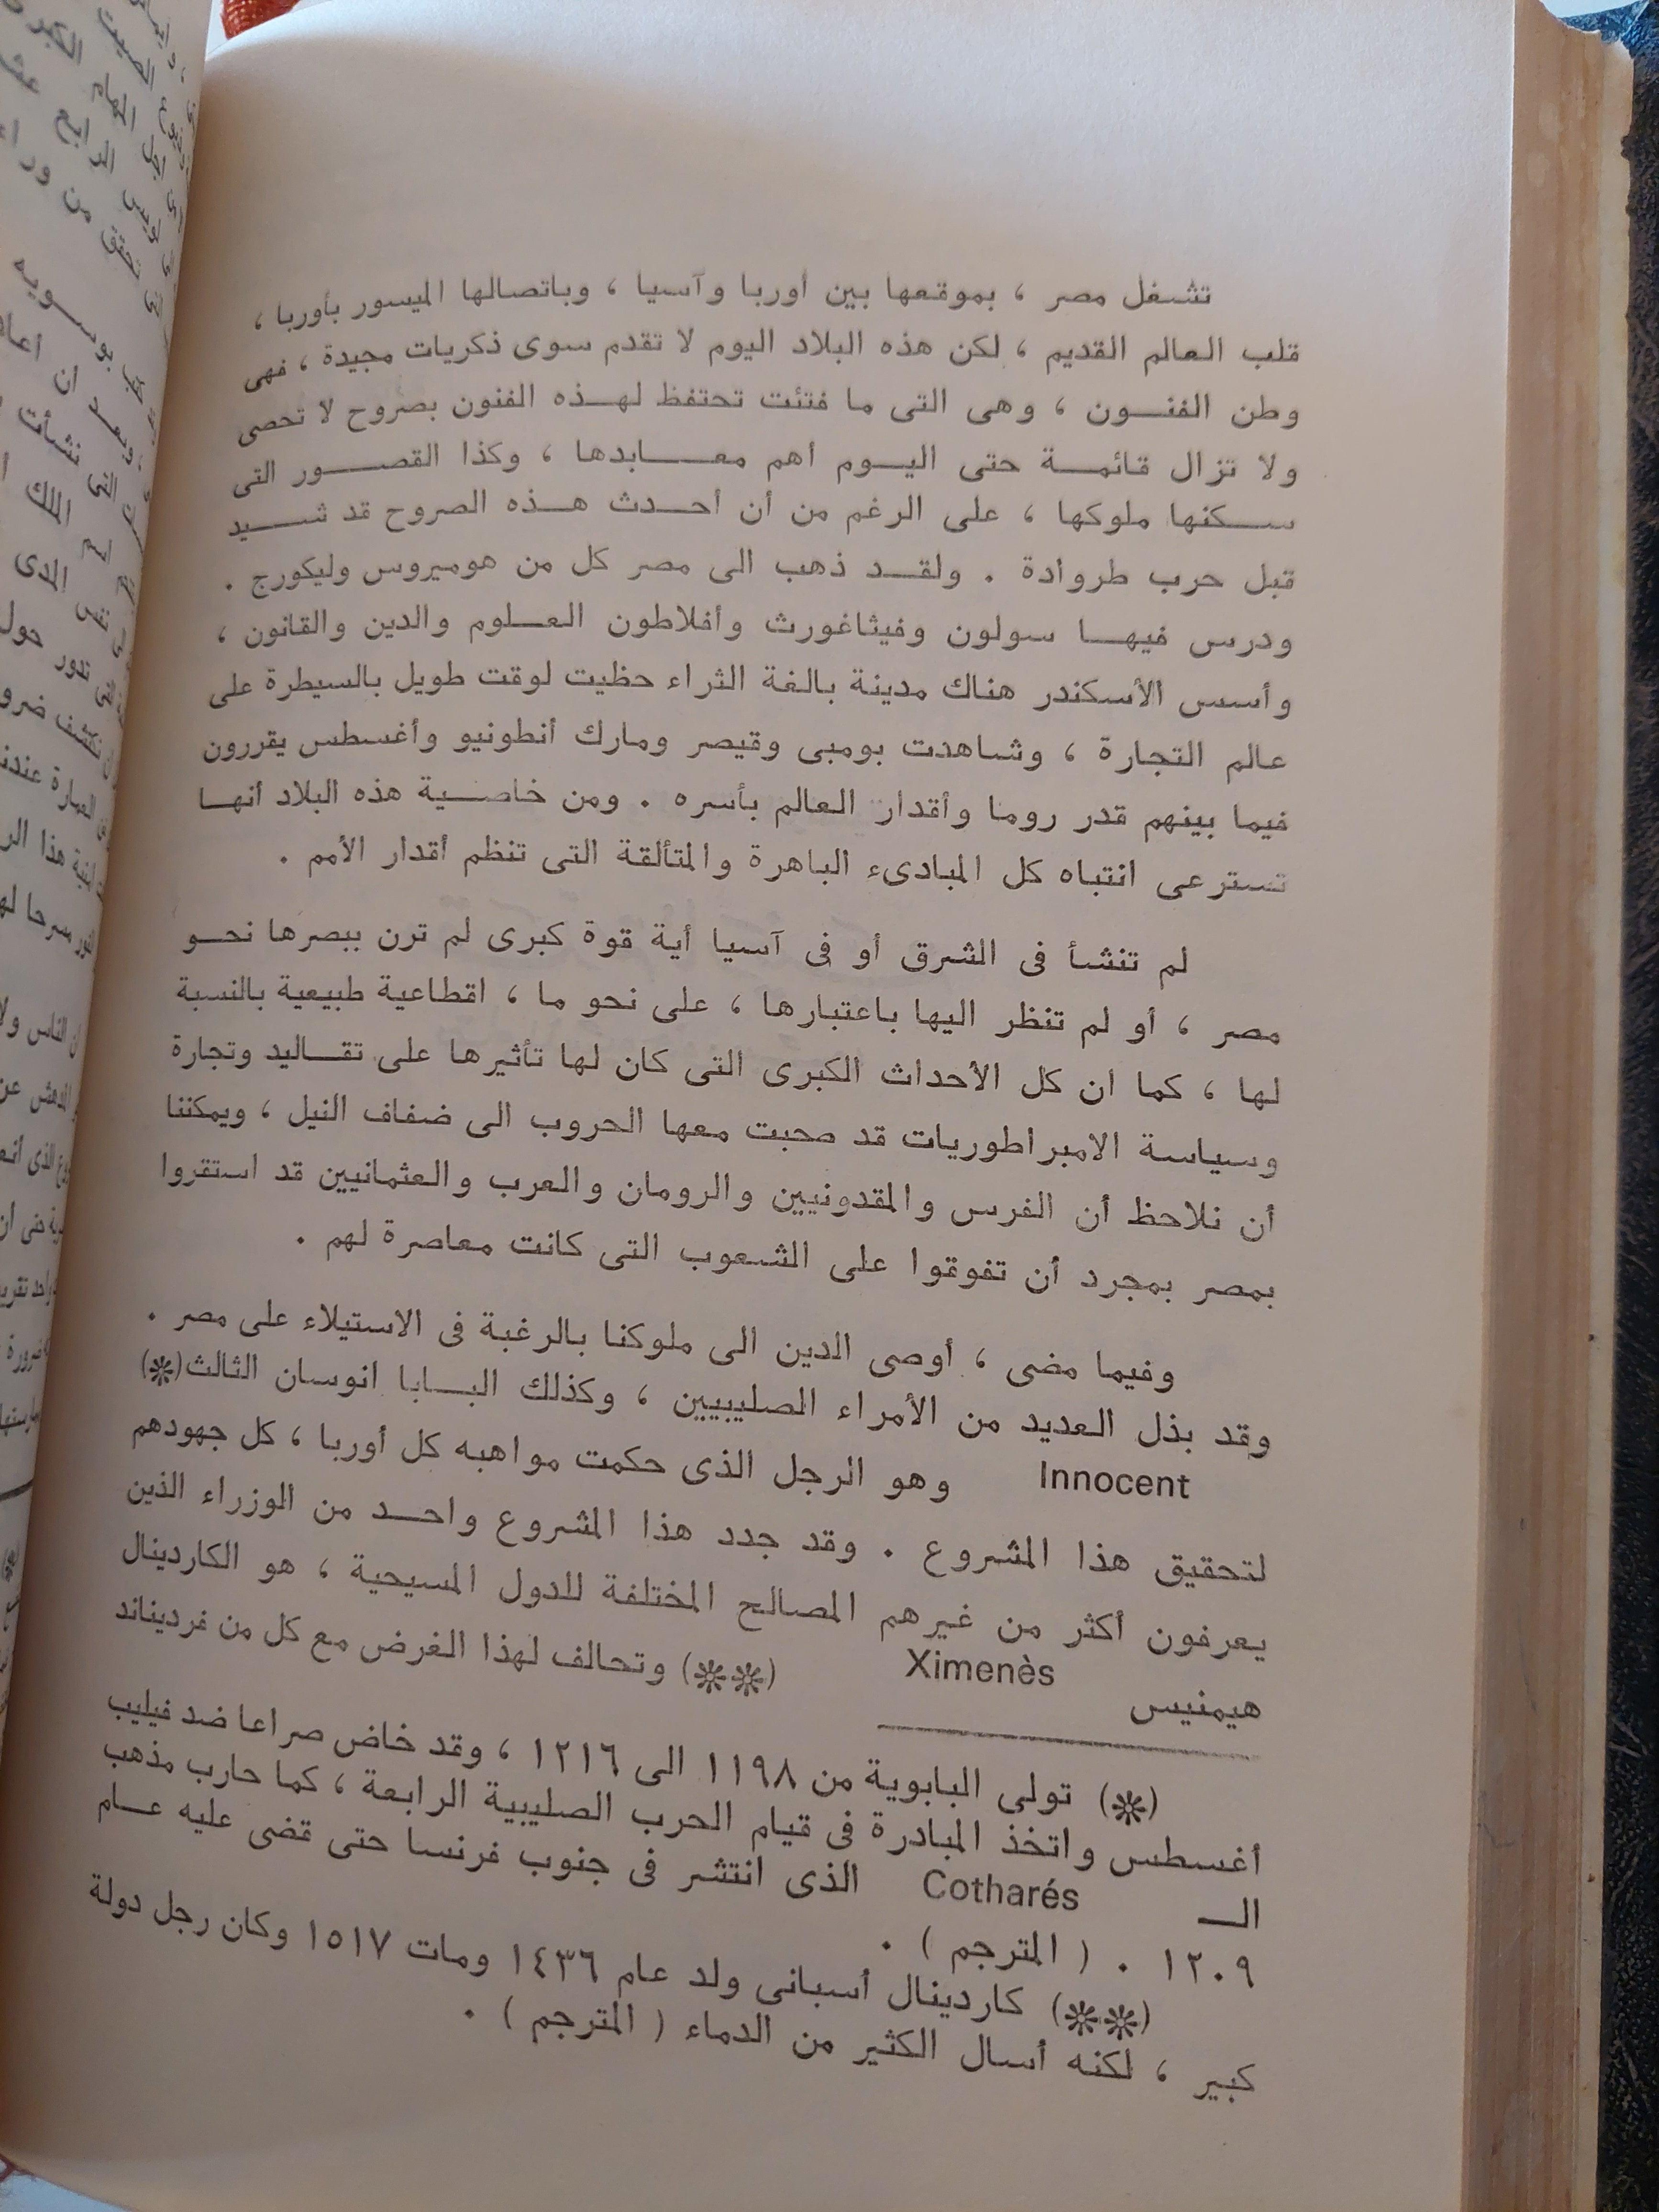 تشغل مصر ، بموقعها بين أوربا وآسيا ، وباتصالها الميسور بأوربا ،
قلب العالم القديم ، لكن هذه البلاد اليوم لا تقدم سوى ذكريات مجيدة ، فهى
وطن الفنــون ، وهى التى ما فتئت تحتفظ لهــذه الفنون بصروح لا تحصى
ولا تزال قائمــة حتى اليــوم أهم معــابدها ، وكذا القصــور التى
ســكنها ملوكها ، على الرغم من أن أحــدث هــذه الصروح قد شــيد
قبل حرب طروادة . ولقــد ذهب الى مصر كل من هوميروس وليكورج .
ودرس فيهــا سولون وفيثاغورث وأفلاطون العــلوم والدين والقانون ،
وأسس الأسكندر هناك مدينة بالغة الثراء حظيت لوقت طويل بالسيطرة على
عالم التجارة ، وشاهدت بومبى وقيصر ومارك أنطونيو وأغسطس يقررون
فيما بينهم قدر روما وأقدار العالم بأسره . ومن خاصــية هذه البلاد أنهــا
تسترعى انتباه كل المبادىء الباهرة والمتألقة التى تنظم أقدار الأمم .
لم تنشأ فى الشرق أو فى آسيا أية قوة كبرى لم ترن ببصرها نحــو
مصر ، أو لم تنظر اليها باعتبارها ، على نحو ما ، اقطاعية طبيعية بالنسبة
لها ، كما ان كل الأحداث الكبرى التى كان لها تأثيرها على تقــاليد وتجارة
وسياسة الامبراطوريات قد صحبت معها الحروب الى ضفاف النيل ، ويمكننا
أن نلاحظ أن الفرس والمقدونيين والرومان والعرب والعثمانيين قد استقروا
بمصر بمجرد أن تفوقوا على الشعوب التى كانت معاصرة لهم .
وفيما مضى ، أوصى الدين الى ملوكنا بالرغبة فى الاستيلاء على مصر .
وقد بذل العديد من الأمراء الصليبيين ، وكذلك البــابا انوسان الثالث(*)
Innocent وهو الرجل الذى حكمت مواهبه كل أوربا ، كل جهودهم
لتحقيق هذا المشروع . وقد جدد هذا المشروع واحــد من الوزراء الذين
يعرفون أكثر من غيرهم المصالح المختلفة للدول المسيحية ، هو الكاردينال
هيمنيس Ximenès (**) وتحالف لهذا الغرض مع كل من فرديناند
(*) تولى البابوية من ١١٩٨ الى ١٢١٦ ، وقد خاض صراعا ضد فيليب
أغسطس واتخذ المبادرة فى قيام الحرب الصليبية الرابعة ، كما حارب مذهب
الــ Cotharés الذى انتشر فى جنوب فرنسا حتى قضى عليه عــام
١٢٠٩ . ( المترجم ) .
(**) كاردينال أسبانى ولد عام ١٤٣٦ ومات ١٥١٧ وكان رجل دولة
كبير ، لكنه أسال الكثير من الدماء ( المترجم ) .